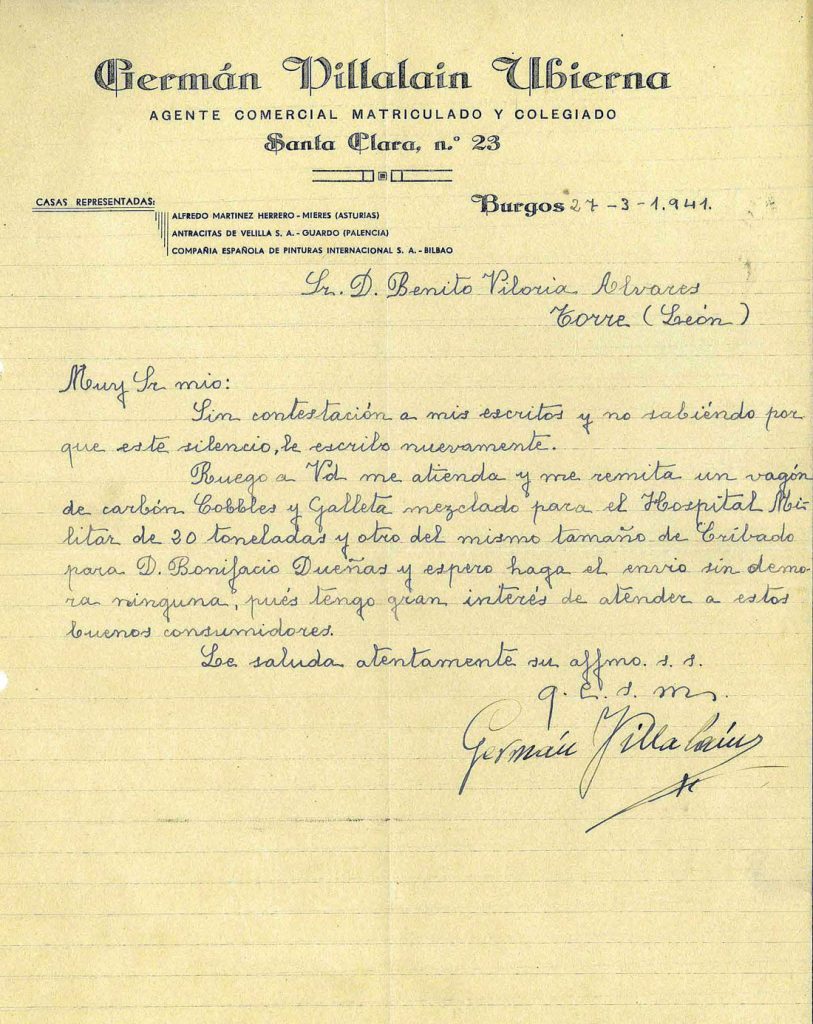 Germán Villalain Ubierna
AGENTE COMERCIAL MATRICULADO Y COLEGIADO
Santa Clara, n.º 23
CASAS REPRESENTADAS:
ALFREDO MARTINEZ HERRERO - MIERES (ASTURIAS)
ANTRACITAS DE VELILLA S. A. - GUARDO (PALENCIA)
COMPAÑIA ESPAÑOLA DE PINTURAS INTERNACIONAL S. A. - BILBAO
Burgos 27 - 3 - 1.941.
Sr. D. Benito Viloria Alvares
Torre (León)
Muy Sr mio:
Sin contestación a mis escritos y no sabiéndo por
que este silencio, le escribo nuevamente.
Ruego a Vd me atienda y me remita un vagón
de carbón Cobbles y Galleta mezclado para el Hospital Mi-
litar de 20 toneladas y otro del mismo tamaño de Cribado
para D. Bonifacio Dueñas y espero haga el envio sin demo-
ra ninguna, pués tengo gran interés de atender a estos
buenos consumidores.
Le saluda atentamente su affmo. s. s.
q. e. s. m.
Germán Villalaín